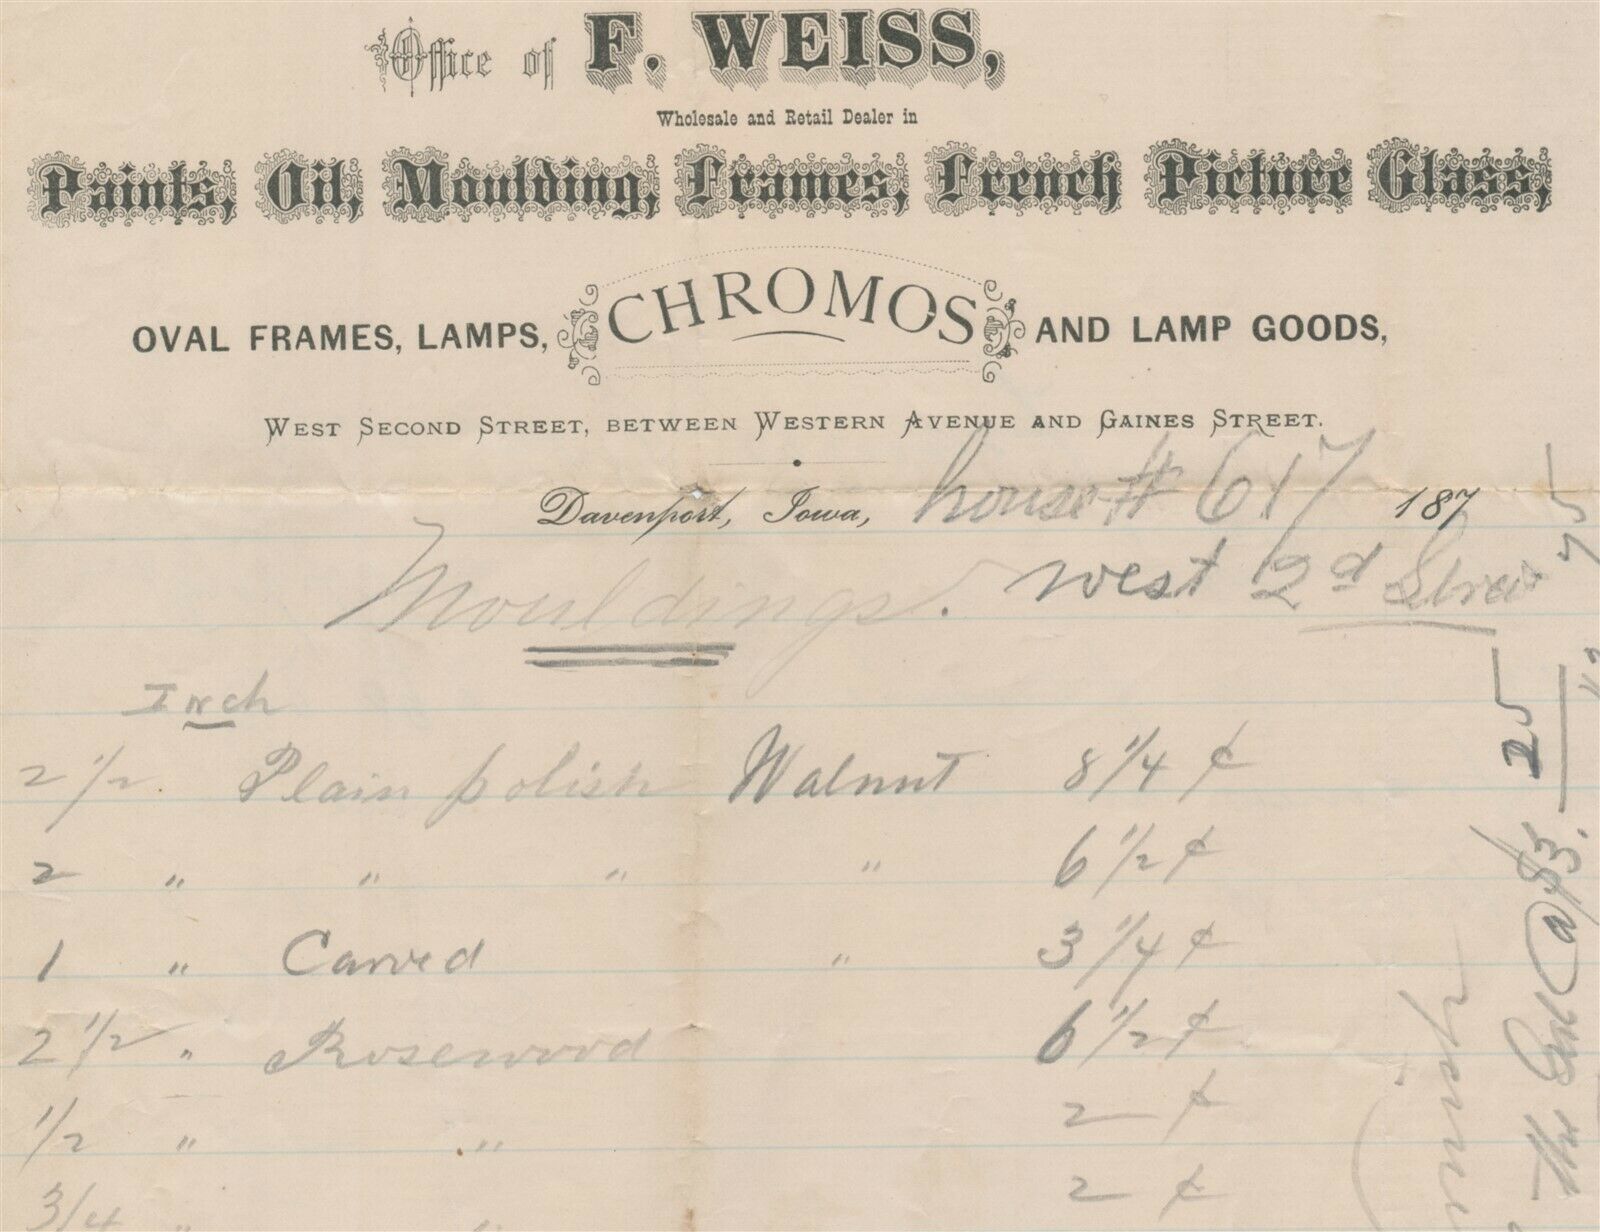 Office of F. WEISS,
Wholesale and Retail Dealer in
Paints, Oil, Moulding, Frames, French Picture Glass,
OVAL FRAMES, LAMPS, CHROMOS AND LAMP GOODS,
WEST SECOND STREET, BETWEEN WESTERN AVENUE AND GAINES STREET.
Davenport, Iowa, house # 617 187
Mouldings. West 2d Street
Inch
2 1/2 Plain polish Walnut 8 1/4 ¢
2 " " " " 6 1/2 ¢
1 " Carved " 3 1/4 ¢
2 1/2 " Rosewood 6 1/2 ¢
1/2 " " 2 ¢
3/4 " " 2 ¢
The @ $3. 25
75